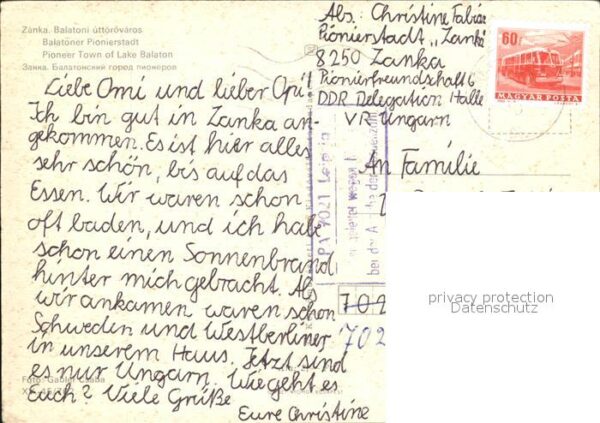 Zánka. Balatoni úttörőváros
Balatoner Pionierstadt
Pioneer Town of Lake Balaton
Занка. Балатонский город пионеров
Abs.: Christine
Pionierstadt „Zanka"
8250 Zanka
Pionierfreundschaft 6
DDR Delegation Halle
VR Ungarn
60f
MAGYAR POSTA
Liebe Omi und lieber Opi!
Ich bin gut in Zanka an-
gekommen. Es ist hier alles
sehr schön, bis auf das
Essen. Wir waren schon
oft baden, und ich habe
schon einen Sonnenbrand
hinter mich gebracht. Als
wir ankamen waren schon
Schweden und Westberliner
in unserem Haus. Jetzt sind
es nur Ungarn. Wie geht es
Euch? Viele Grüße
Eure Christine
An Familie
PA 7021 Leipzig
bei der
702
privacy protection
Datenschutz
Foto: Gabler Csaba